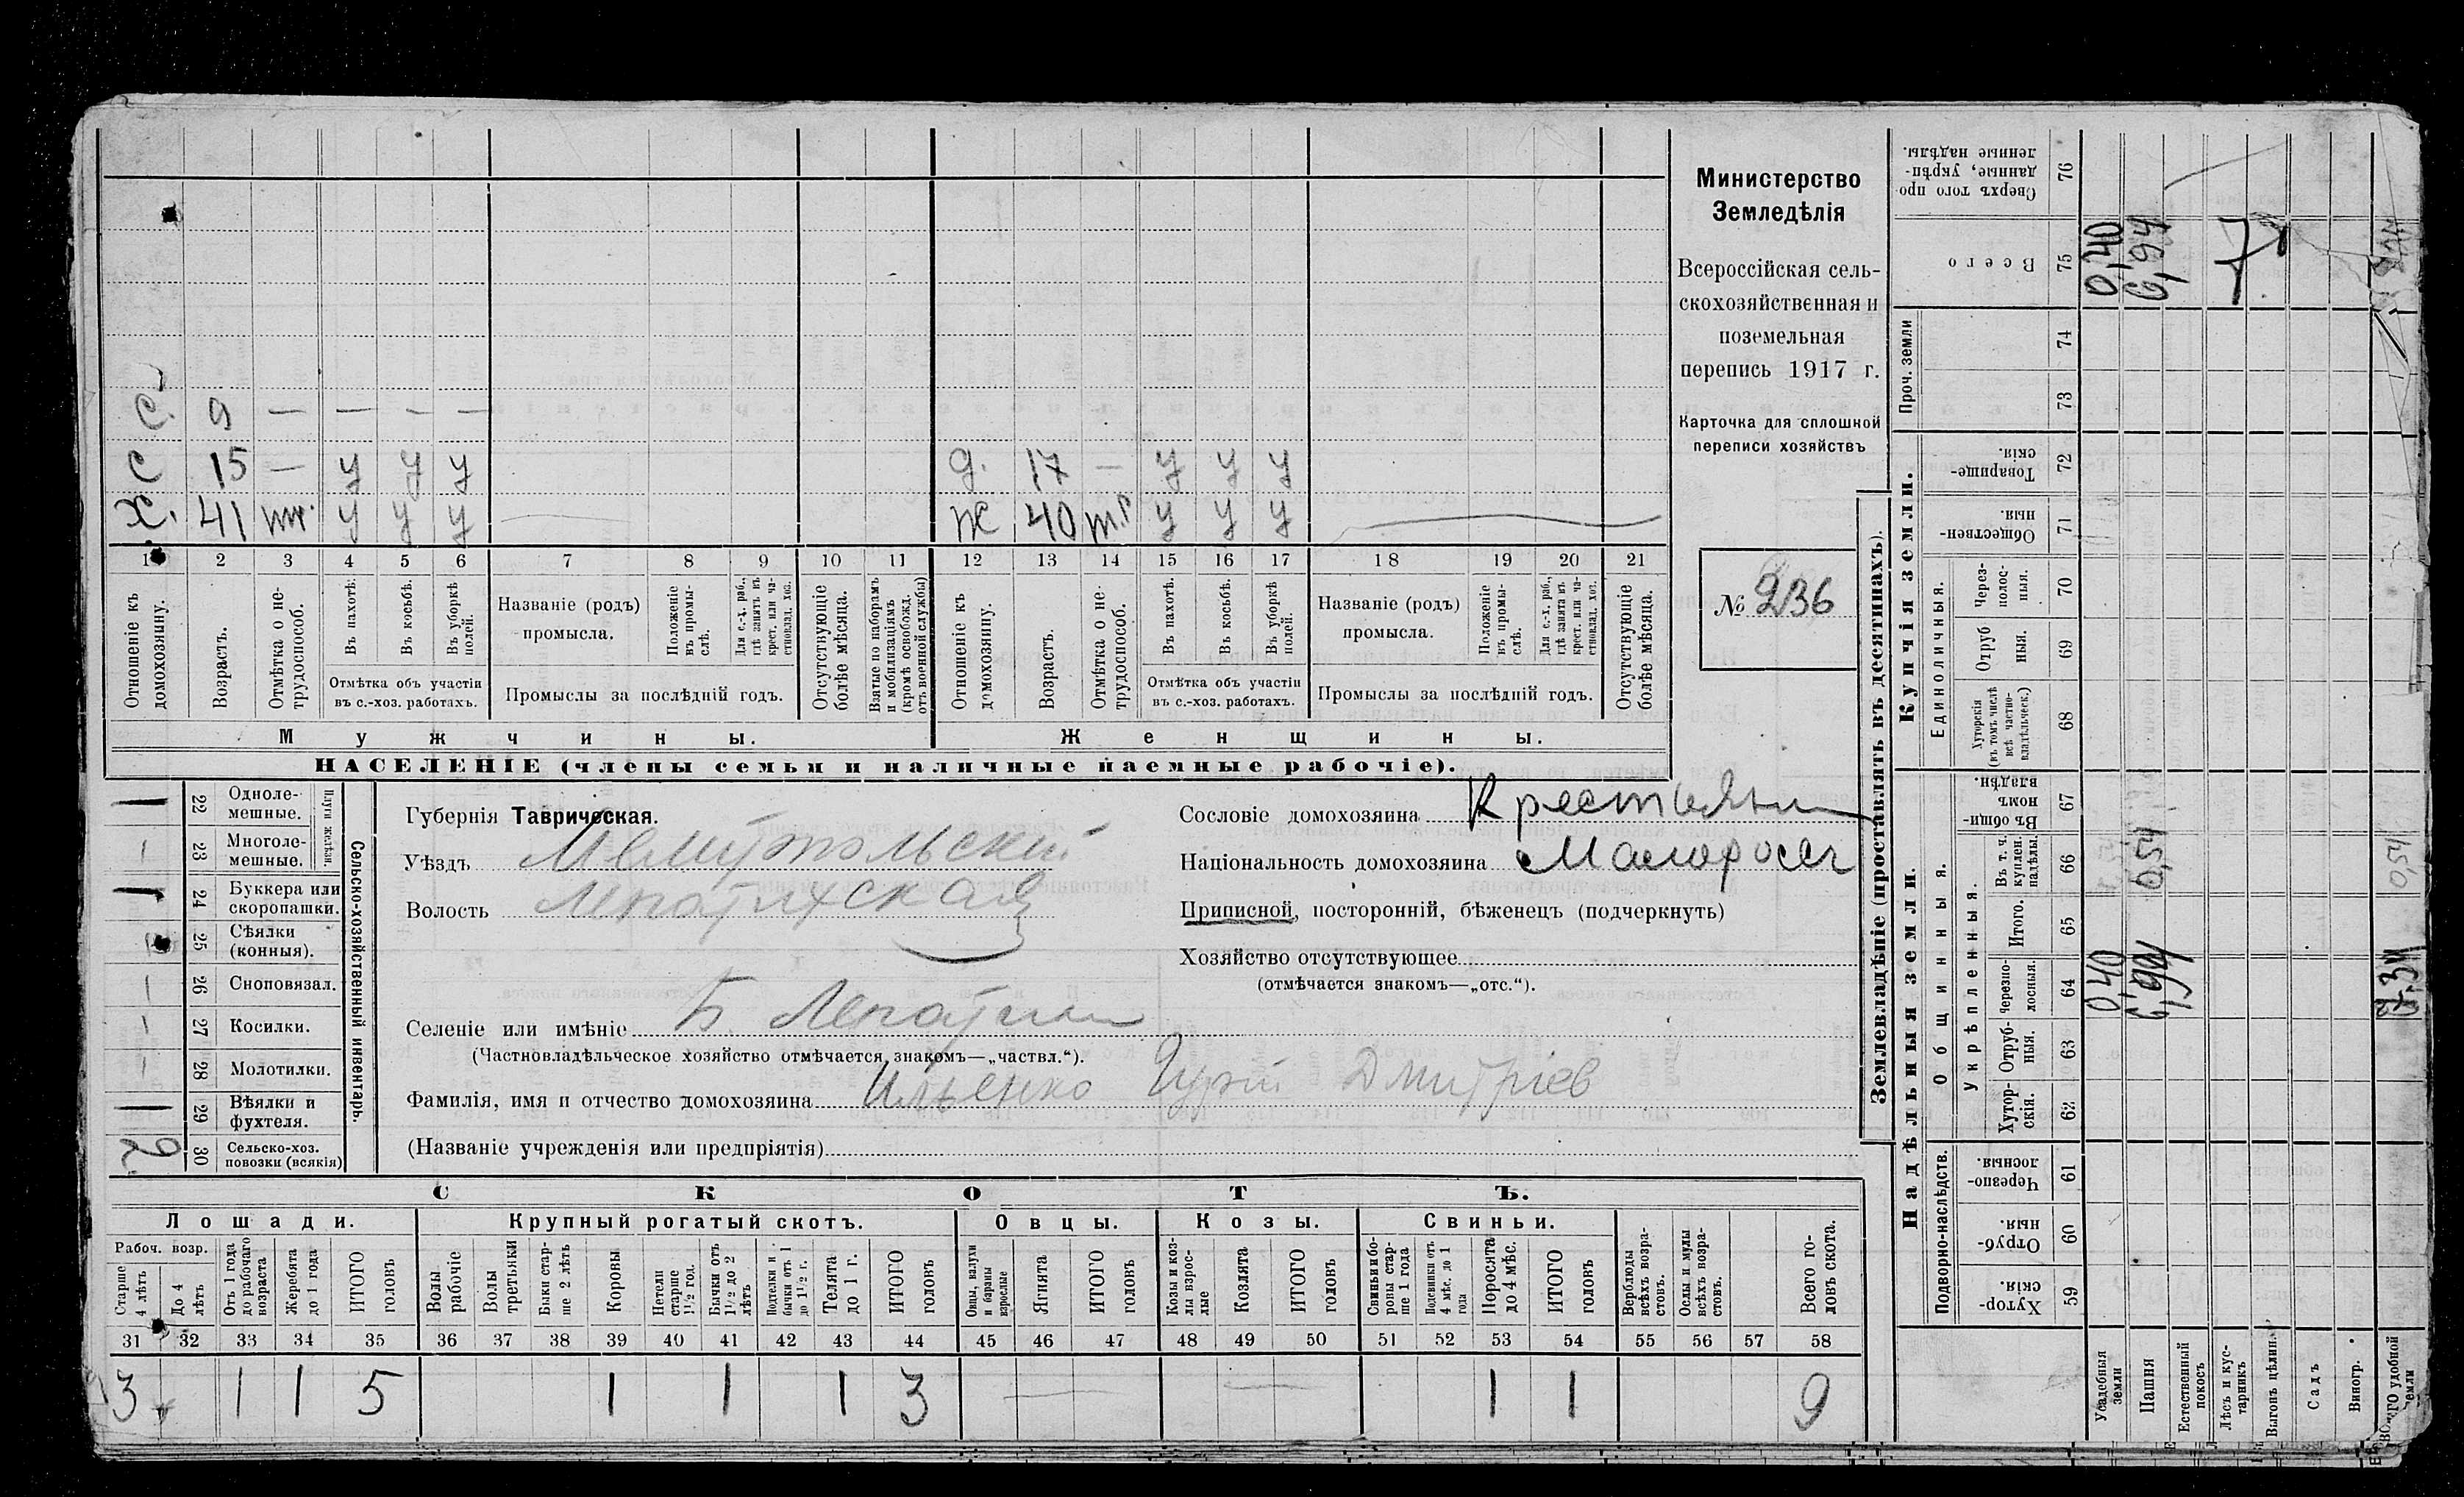 Министерство
Земледѣлія
Всероссійская сель-
скохозяйственная и
поземельная
перепись 1917 г.
Карточка для сплошной
переписи хозяйствъ
№ 236
С. 9 — — — —
С 15 — у у у
Х. 41 тр. у у у
д. 17 — у у у
ж 40 тр у у у
1 2 3 4 5 6 7 8 9 10 11 12 13 14 15 16 17 18 19 20 21
Отношеніе къ домохозяину.
Возрастъ.
Отмѣтка о не-трудоспособ.
Въ пахотѣ.
Въ косьбѣ.
Въ уборкѣ полей.
Отмѣтка объ участіи
въ с.-хоз. работахъ.
Названіе (родъ)
промысла.
Положеніе въ промы-слѣ.
Для с.-х. раб., гдѣ занятъ въ крест. или ча-стновлад. хоз.
Промыслы за послѣдній годъ.
Отсутствующіе болѣе мѣсяца.
Взятые по наборамъ и мобилизаціямъ (кромѣ освобожд. отъ военной службы)
Отношеніе къ домохозяину.
Возрастъ.
Отмѣтка о не-трудоспособ.
Въ пахотѣ.
Въ косьбѣ.
Въ уборкѣ полей.
Отмѣтка объ участіи
въ с.-хоз. работахъ.
Названіе (родъ)
промысла.
Положеніе въ промы-слѣ.
Для с.-х. раб., гдѣ занята въ крест. или ча-стновлад. хоз.
Промыслы за послѣдній годъ.
Отсутствующіе болѣе мѣсяца.
Мужчины.
Женщины.
НАСЕЛЕНІЕ (члены семьи и наличные наемные рабочіе).
Сельско-хозяйственный инвентарь.
Плуги желѣзн.
22 Однолемешные. |
23 Многолемешные. —
24 Буккера или скоропашки. |
25 Сѣялки (конныя).
26 Сноповязал. —
27 Косилки. —
28 Молотилки. —
29 Вѣялки и фухтеля. |
30 Сельско-хоз. повозки (всякія) 2
Губернія Таврическая.
Уѣздъ Мелитопольский
Волость Лепатихская
Селеніе или имѣніе Б. Лепатиха
(Частновладѣльческое хозяйство отмѣчается знакомъ—„частвл.“).
Фамилія, имя и отчество домохозяина Ильенко Гурій Дмитріев
(Названіе учрежденія или предпріятія)
Сословіе домохозяина Крестьянин
Національность домохозяина Малоросъ
Приписной, посторонній, бѣженецъ (подчеркнуть)
Хозяйство отсутствующее
(отмѣчается знакомъ—„отс.“).
СКОТЪ.
Лошади. Крупный рогатый скотъ. Овцы. Козы. Свиньи.
Рабоч. возр.
Старше 4 лѣтъ
До 4 лѣтъ
Отъ 1 года до рабочаго возраста
Жеребята до 1 года
ИТОГО головъ
Волы рабочіе
Волы третьяки
Быки стар-ше 2 лѣтъ
Коровы
Нетели старше 1½ год.
Бычки отъ 1½ до 2 лѣтъ
Подтелки и бычки отъ 1 до 1½ г.
Телята до 1 г.
ИТОГО головъ
Овцы, валухи и бараны взрослые
Ягнята
ИТОГО головъ
Козы и коз-лы взрос-лые
Козлята
ИТОГО головъ
Свиньи и бо-ровы стар-ше 1 года
Подсвинки отъ 4 мѣс. до 1 года
Поросята до 4 мѣс.
ИТОГО головъ
Верблюды всѣхъ возра-стовъ.
Ослы и мулы всѣхъ возра-стовъ.
Всего го-ловъ скота.
31 32 33 34 35 36 37 38 39 40 41 42 43 44 45 46 47 48 49 50 51 52 53 54 55 56 57 58
3 1 1 5 1 1 1 3 — — 1 1 9
Землевладѣніе (проставлять въ десятинахъ).
Купчія земли.
Надѣльныя земли.
Сверхъ того про-данные, укрѣп-ленные надѣлы. 76
Всего 75 0,40 6,94 7
Проч. земли 74 73
Товарище-скія. 72
Обществен-ныя. 71
Единоличныя.
Через-полос-ныя. 70
Отруб ныя. 69
Хуторскія (въ томъ числѣ всѣ частно-владѣльческ.) 68
Общинныя.
Въ общин-номъ владѣн. 67
Укрѣпленныя.
Въ т. ч. куплен. надѣлы. 66 0,54 0,54
Итого. 65
Черезпо-лосныя. 64 0,40
Отруб-ныя. 63
Хутор-скія. 62
Подворно-наслѣдств.
Черезпо-лосныя. 61
Отруб-ныя. 60
Хутор-скія. 59
Усадебныя земли
Пашня
Естественный покосъ
Лѣсъ и кус-тарникъ
Выгонъ цѣлин.
Садъ
Виногр.
удобной земли